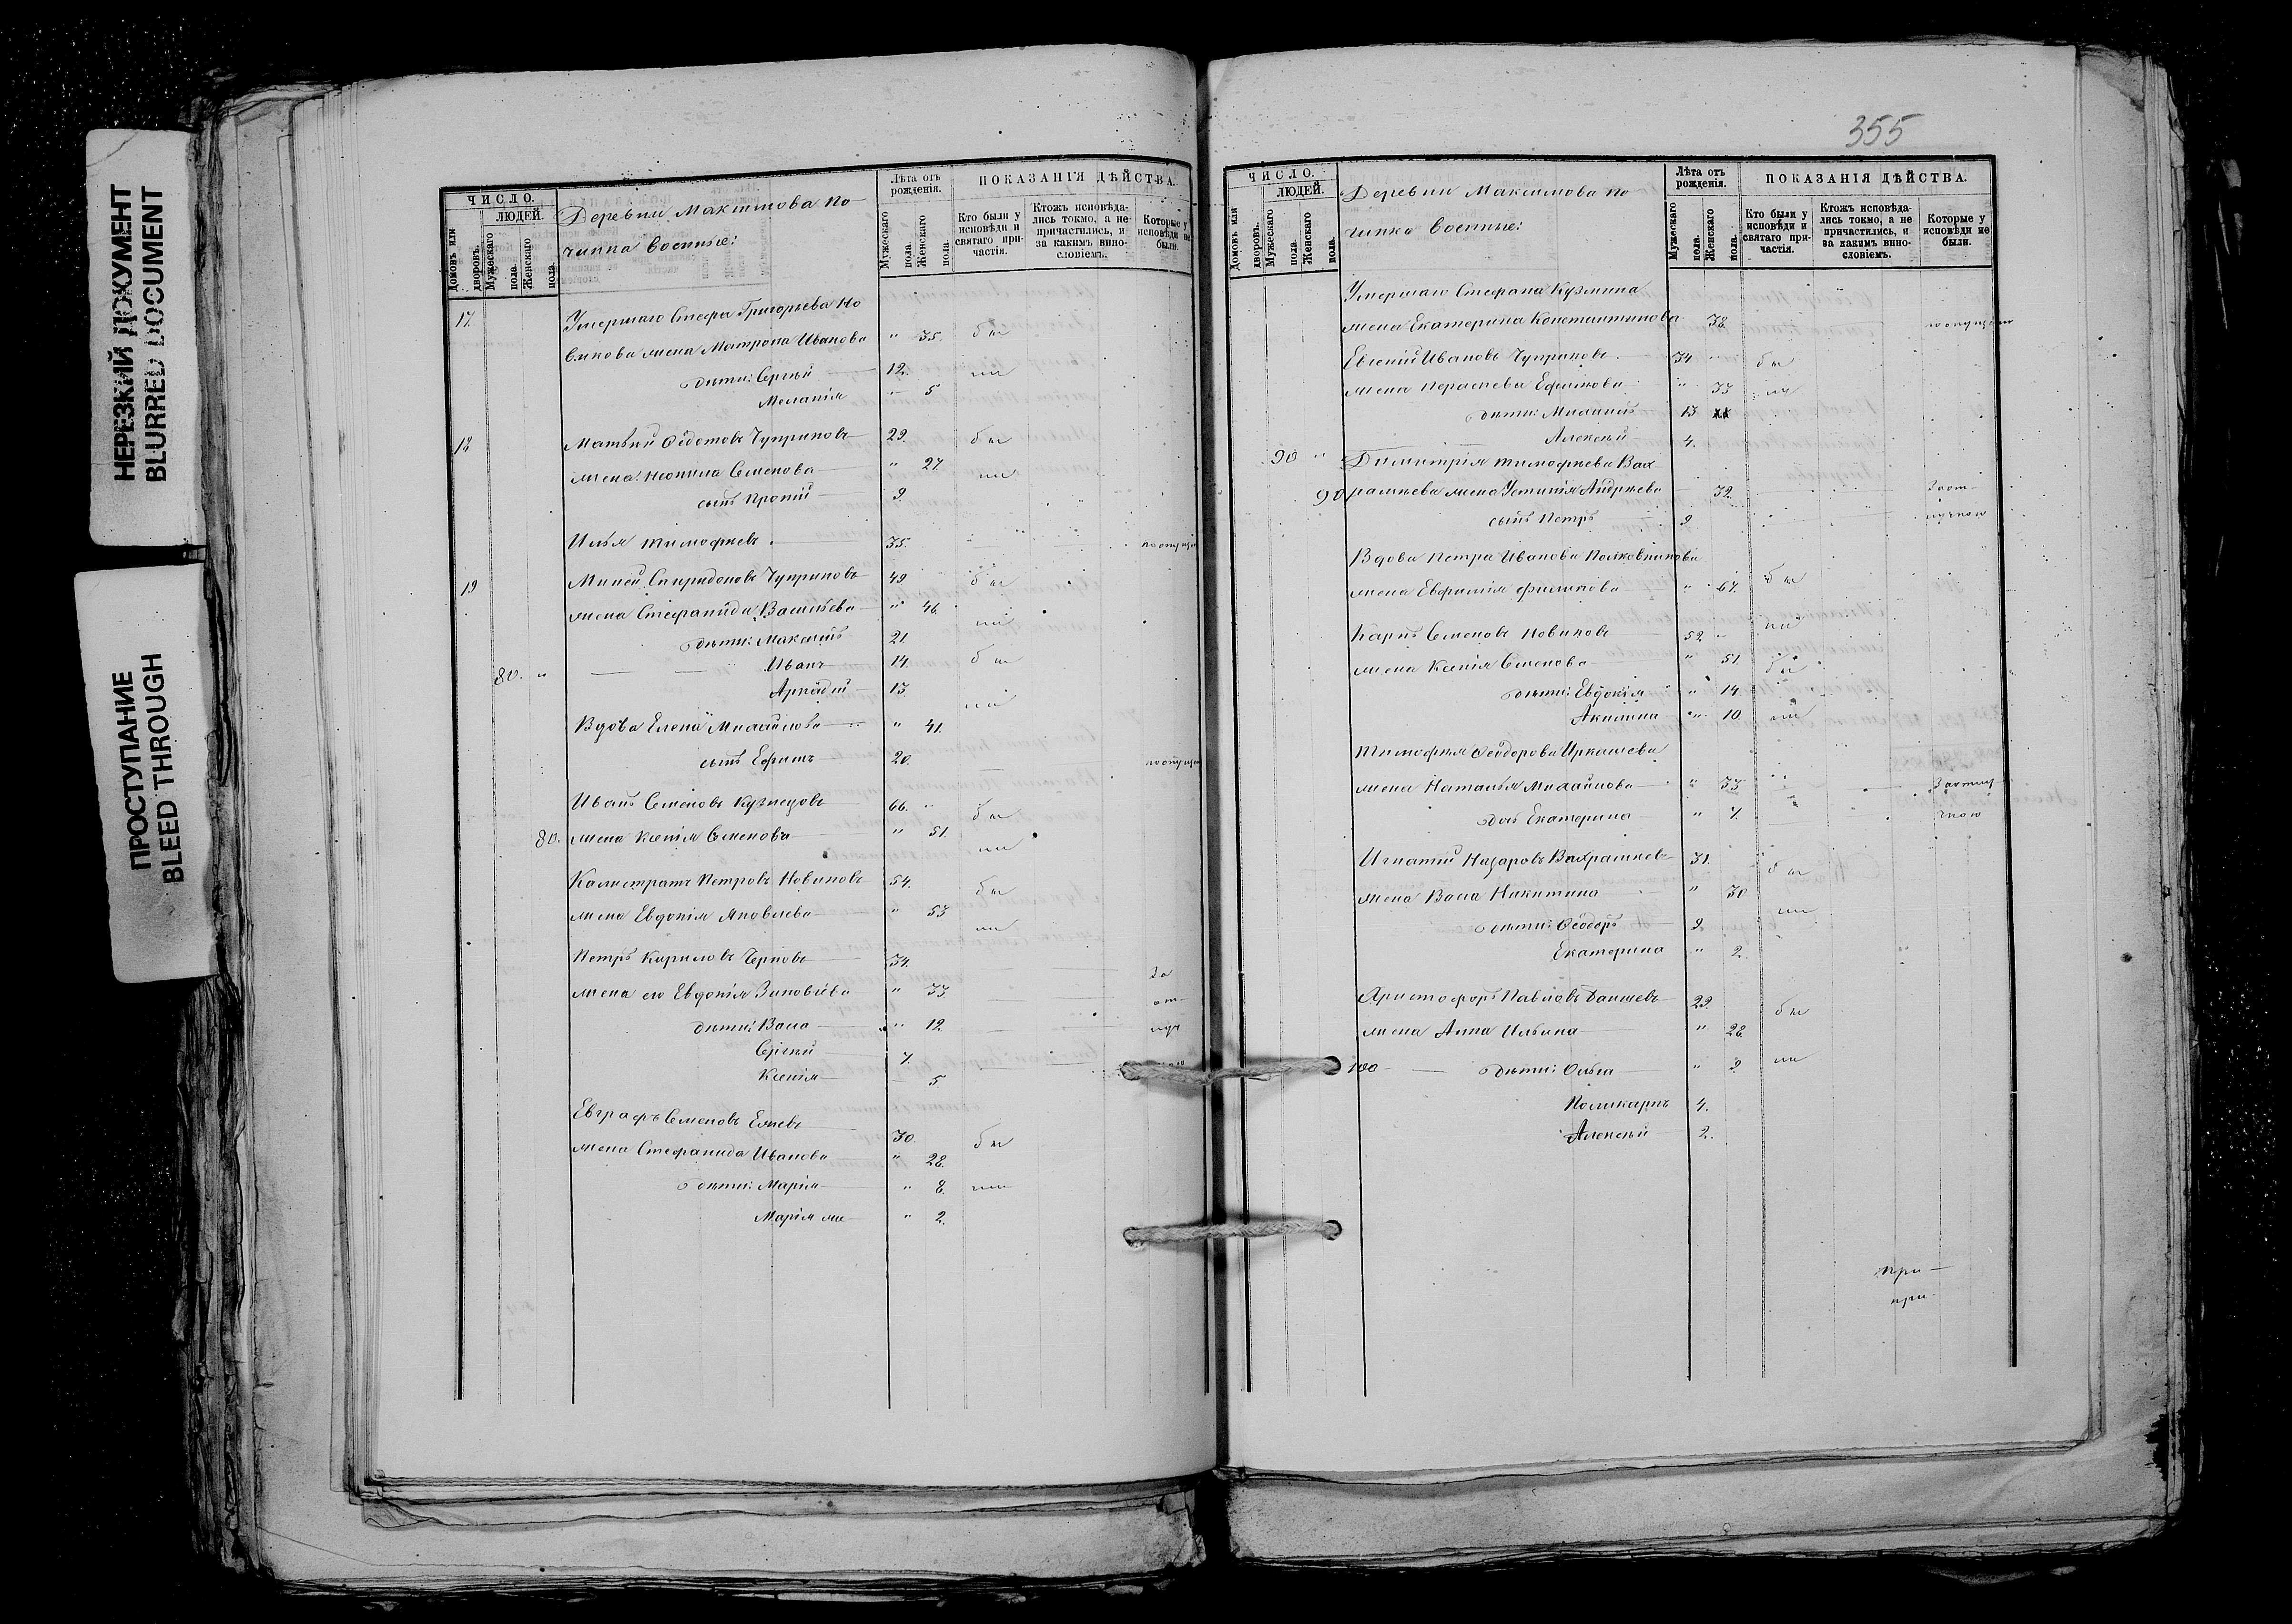 НЕРЕЗКИЙ ДОКУМЕНТ
BLURRED DOCUMENT
ПРОСТУПАНИЕ
BLEED THROUGH
ЧИСЛО.
ЛЮДЕЙ.
Домовъ или дворовъ.
Мужескаго пола.
Женскаго пола.
Деревни Максимова по
чинка военные:
Лѣта отъ рожденія.
Мужескаго пола.
Женскаго пола.
ПОКАЗАНІЯ ДѢЙСТВА.
Кто были у исповѣди и святаго причастія.
Ктожъ исповѣдались токмо, а не причастились, и за какимъ винословіемъ.
Которые у исповѣди не были.
17. Умершаго Стефа Григорьева Но
викова жена Матрона Иванова " 35. бы
дѣти: Сергѣй 12. ли
Меланія " 5
18 Матѣй Ѳедотовъ Чуприновъ 29. бы
жена: Неонила Семенова " 27 ли
сынъ Протій 9.
Илья Тимофѣевъ 35. по опущ
19 Миней Спиридоновъ Чуприновъ 49 бы
жена Стефанида Васильева " 46. ли
дѣти: Максимъ 21
80. " Иванъ 14. бы
Аркадій 13. ли
Вдова Елена Михайлова " 41.
сынъ Ефимъ 20. по опущ
Иванъ Семеновъ Кузнецовъ 66. " бы
80. жена Ксенія Семенова " 51. ли
Калистратъ Петровъ Новиковъ 54. бы
жена Евдокія Яковлева " 53 ли
Петръ Кириловъ Черновъ 34. За
жена его Евдокія Зиновіева " 33 от-
дѣти: Васа " 12. луч
Сергѣй 7.
Ксенія 5.
Евграфъ Семеновъ Елиевъ 30. бы
жена Стефанида Иванова " 28.
дѣти: Марія " 8. ли
Марія же " 2.
355
ЧИСЛО.
ЛЮДЕЙ.
Домовъ или дворовъ.
Мужескаго пола.
Женскаго пола.
Деревни Максимова по
чинка военные:
Лѣта отъ рожденія.
Мужескаго пола.
Женскаго пола.
ПОКАЗАНІЯ ДѢЙСТВА.
Кто были у исповѣди и святаго причастія.
Ктожъ исповѣдались токмо, а не причастились, и за какимъ винословіемъ.
Которые у исповѣди не были.
Умершаго Стефана Кузмина
жена Екатерина Константинова 38. по опущен
Евгеній Ивановъ Чуприновъ 34 " бы
жена Параскева Ефимова " 33 ли
дѣти: Михаилъ 13
Алексѣй 4.
90 " Димитрія Тимофѣева Вах
90 рамѣева жена Устинія Андрѣева 32. За от-
сынъ Петръ 9 лучкою
Вдова Петра Иванова Полковникова
жена Евфимія Филипова " 67. бы
Карпъ Семеновъ Новиковъ 52. " ли
жена Ксенія Семенова " 51 бы
дѣти: Евдокія " 14
Акилина " 10. ли
Тимофѣя Ѳеодорова
жена Наталья Михайлова " 33 За отлу
дочь Екатерина " 7. чкою
Игнатій Назаровъ Вахрамѣевъ 31. бы
жена Васа Никитина " 30 ли
дѣти: Ѳеодоръ 9.
Екатерина " 2
Христофоръ Павловъ 29. бы
жена Анна Ильина " 28.
100 дѣти: Ольга " 9. ли
Поликарпъ 4.
Алексѣй 2.
при-
при-